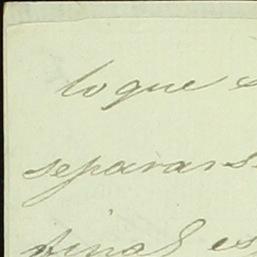 lo que
separars
final es